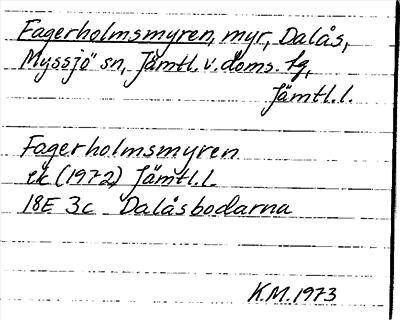 Fagerholmsmyren, myr, Dalås,
Myssjö sn, Jämtl. v. doms. tg,
Jämtl.l.
Fagerholmsmyren
ek (1972) Jämtl.l.
18E 3c Dalåsbodarna
K.M. 1973